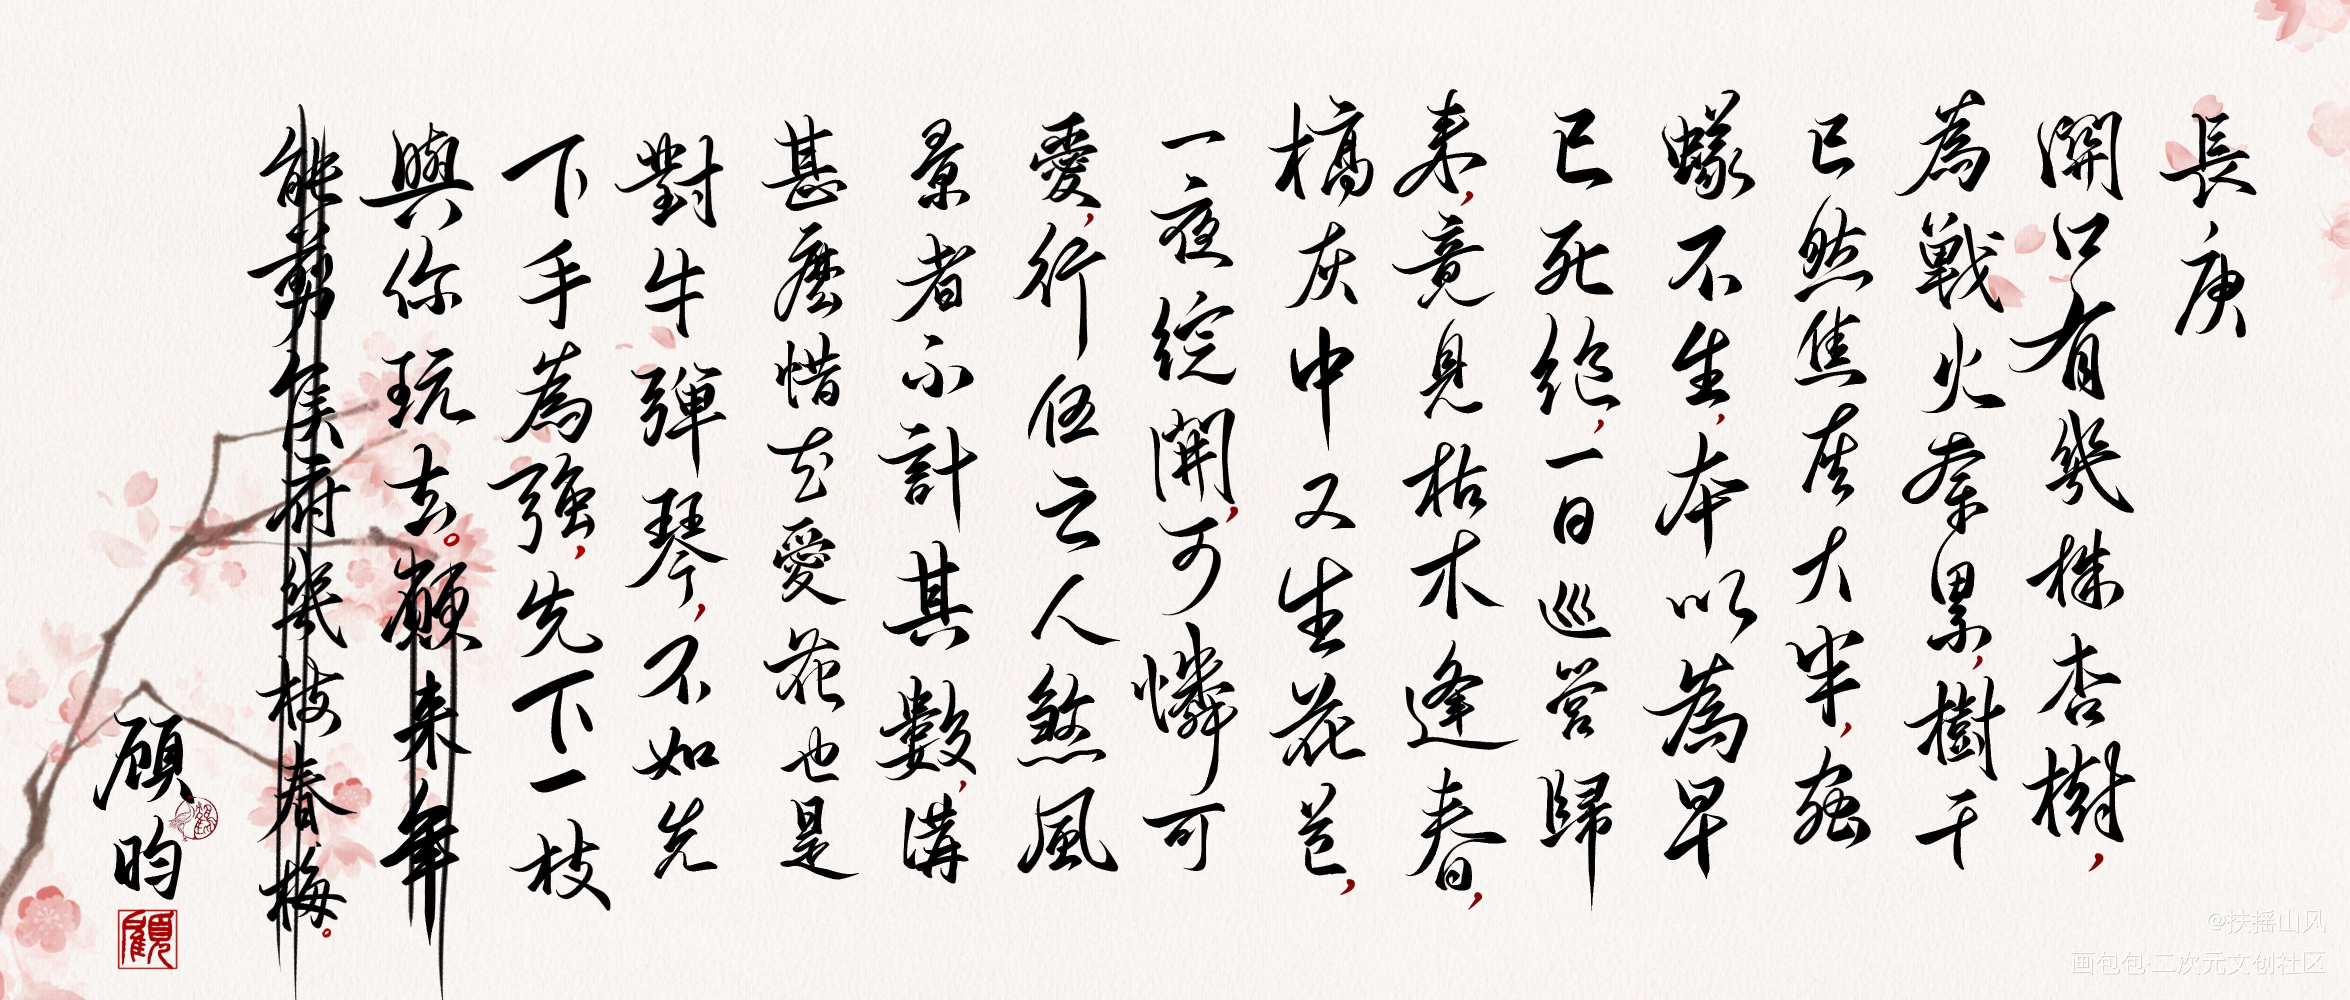 長庚
関口有幾株杏樹，
為戰火牽累，樹干
已然焦灰大半，蟲
蟻不生，本以為早
已死絕，一日巡營歸
来，竟見枯木逢春，
槁灰中又生花苞，
一夜綻開，可憐可
愛，行伍之人煞風
景者不計其數，講
甚麼惜花愛花也是
對牛彈琴，不如先
下手為強，先下一枝
與你玩去。願来年
能剪侯府幾枝春梅。
顾昀
顧
@扶摇山风
画包包·二次元文创社区